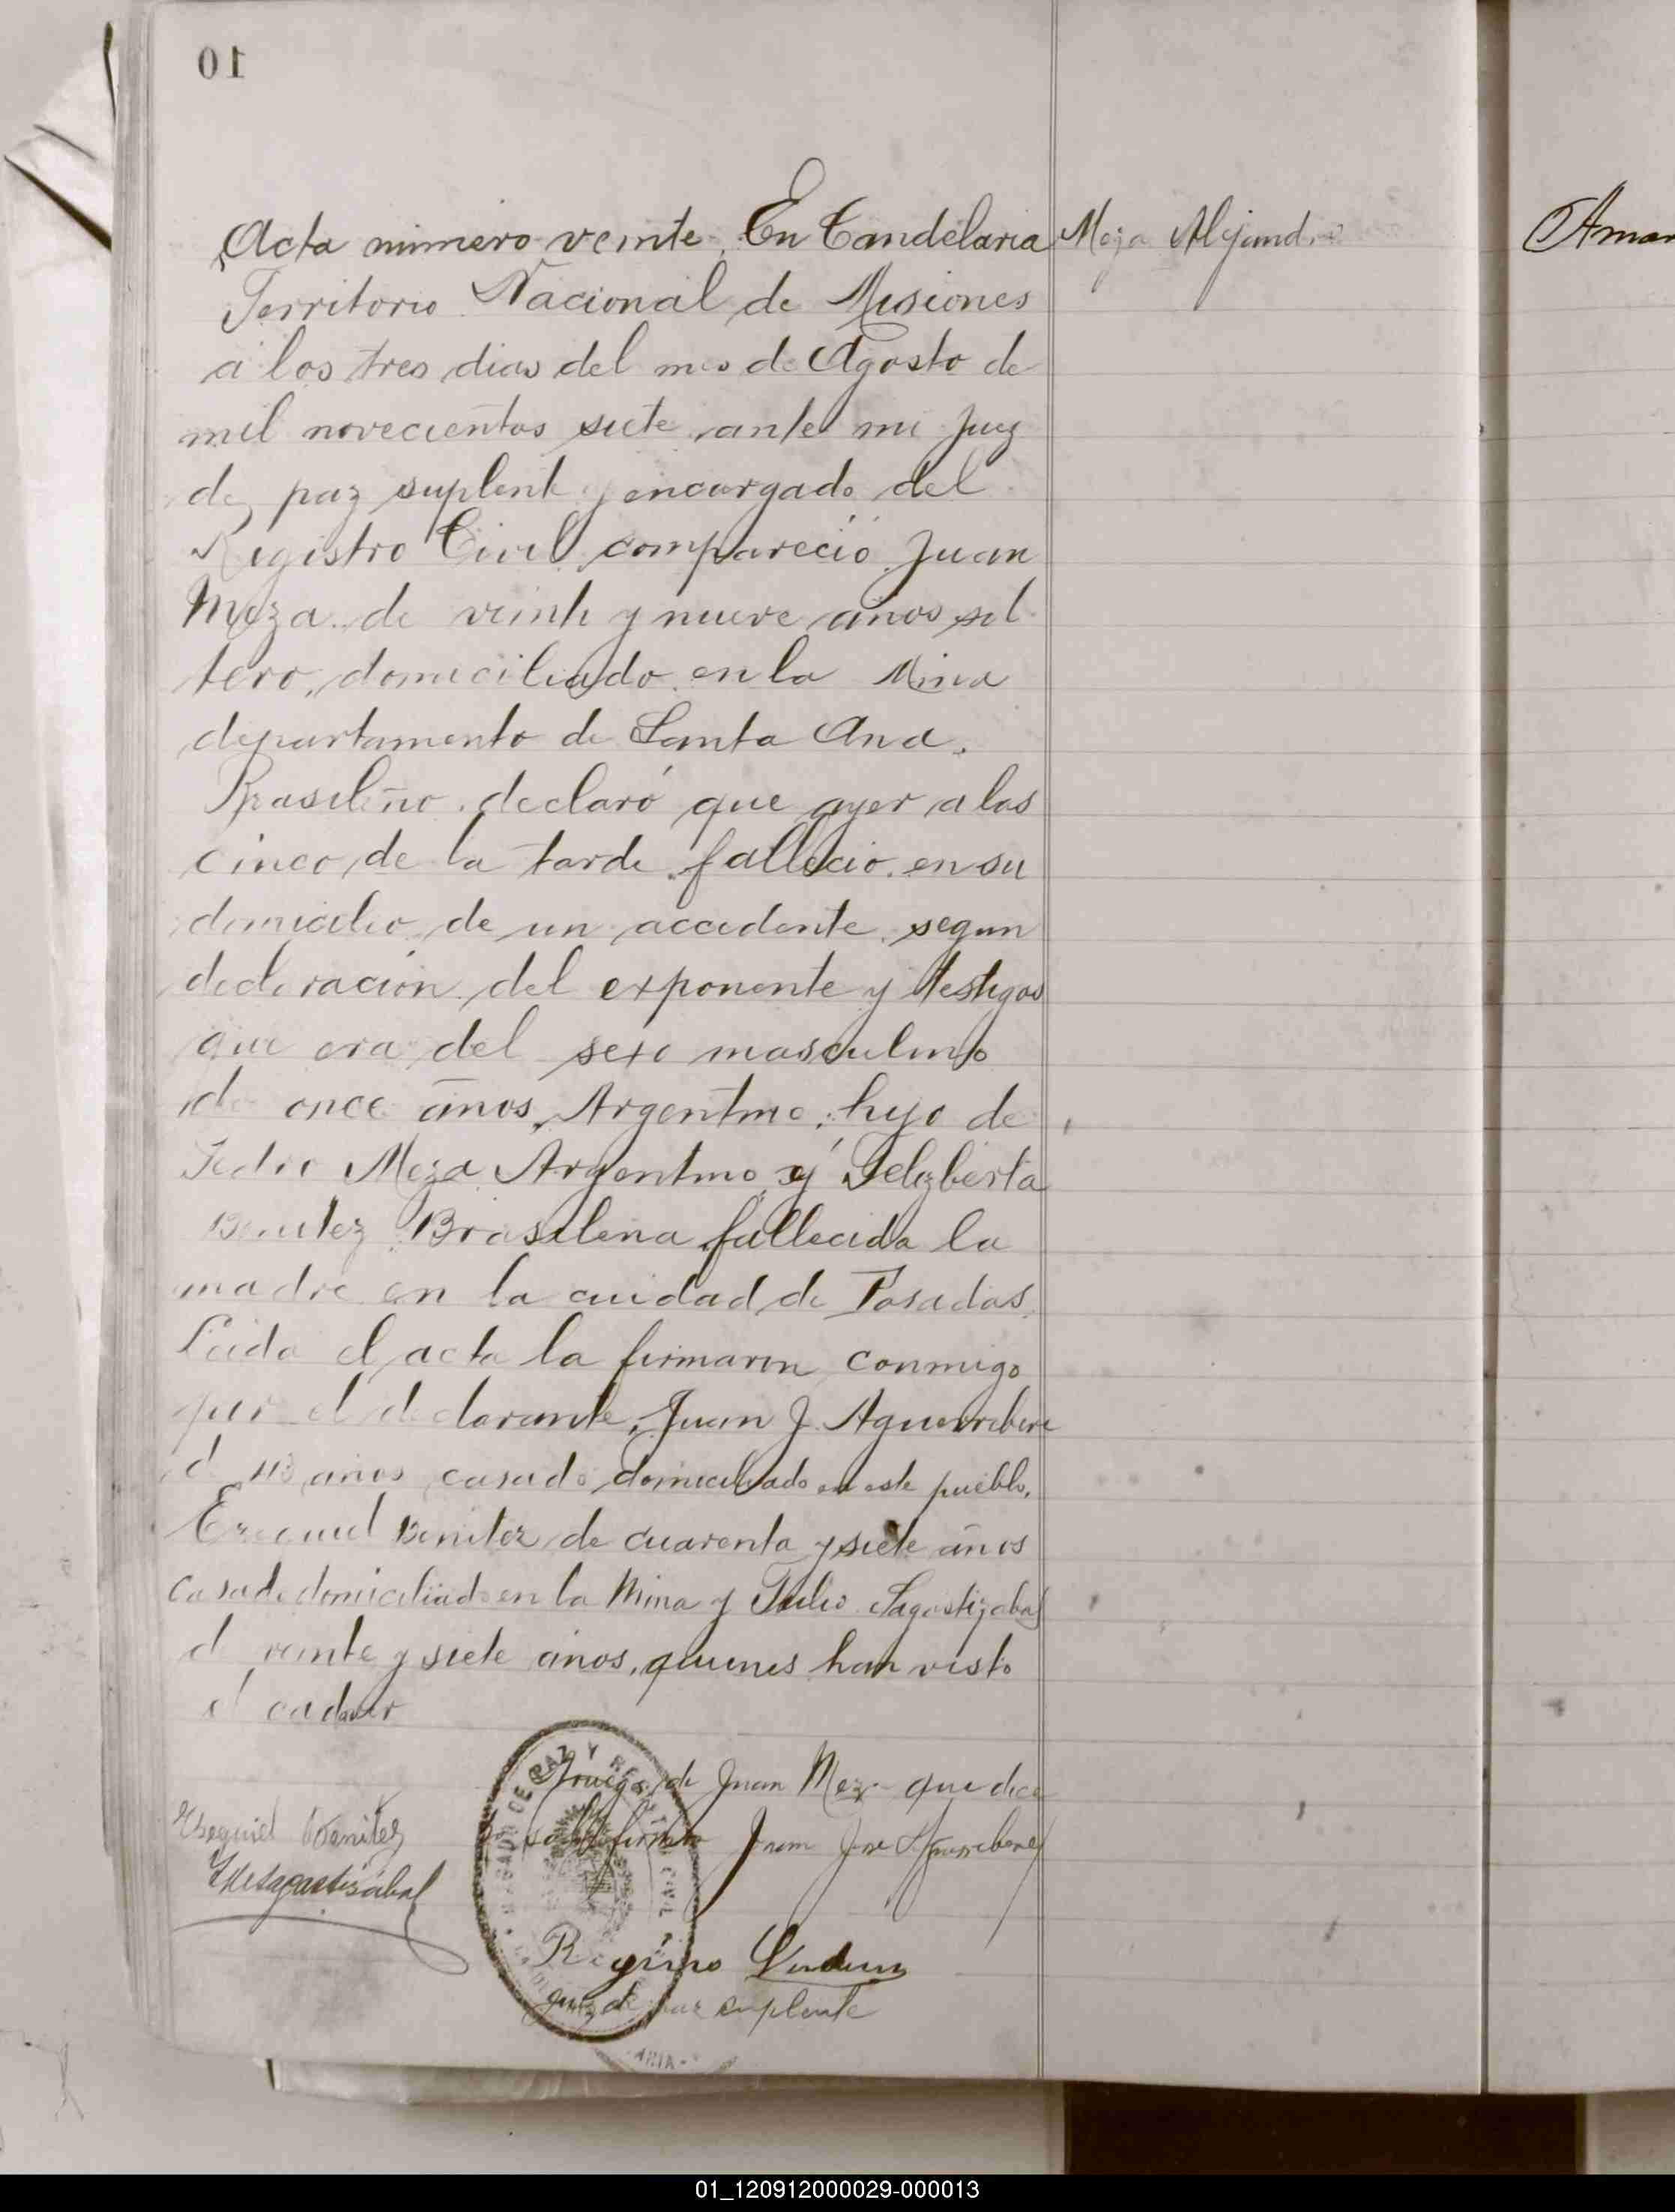 10
Acta número veinte. En Candelaria
Meza Alejandro
Aman
Territorio Nacional de Misiones
a los tres dias del mes de Agosto de
mil novecientos siete ante mi Juez
de paz suplente y encargado del
Registro Civil compareció Juan
Meza de veinte y nueve años sol
tero, domiciliado en la Mina
departamento de Santa Ana.
Brasileño declaró que ayer a las
cinco de la tarde fallecio en su
domicilio de un accidente segun
declaración del exponente y testigos
que era del sexo masculino
de once años, Argentino, hijo de
Pedro Meza Argentino y Felizberta
Benitez Brasileña fallecida la
madre en la ciudad de Posadas.
Leida el acta la firmaron conmigo
por el declarante, Juan J. Aguerribere
d 43 años casado domiciliado en este pueblo,
Ezequiel Benitez de cuarenta y siete años
casado domiciliado en la Mina y Julio Sagastizabal
d veinte y siete años, quienes han visto
el cadaver
A ruego de Juan Meza que dice
no firmar Juan José Aguerribere
Esequiel Benitez
Sagastizabal
Regino
Juez de paz suplente
JUZGADO DE PAZ Y REGISTRO CIVIL
ARIA
01_120912000029-000013